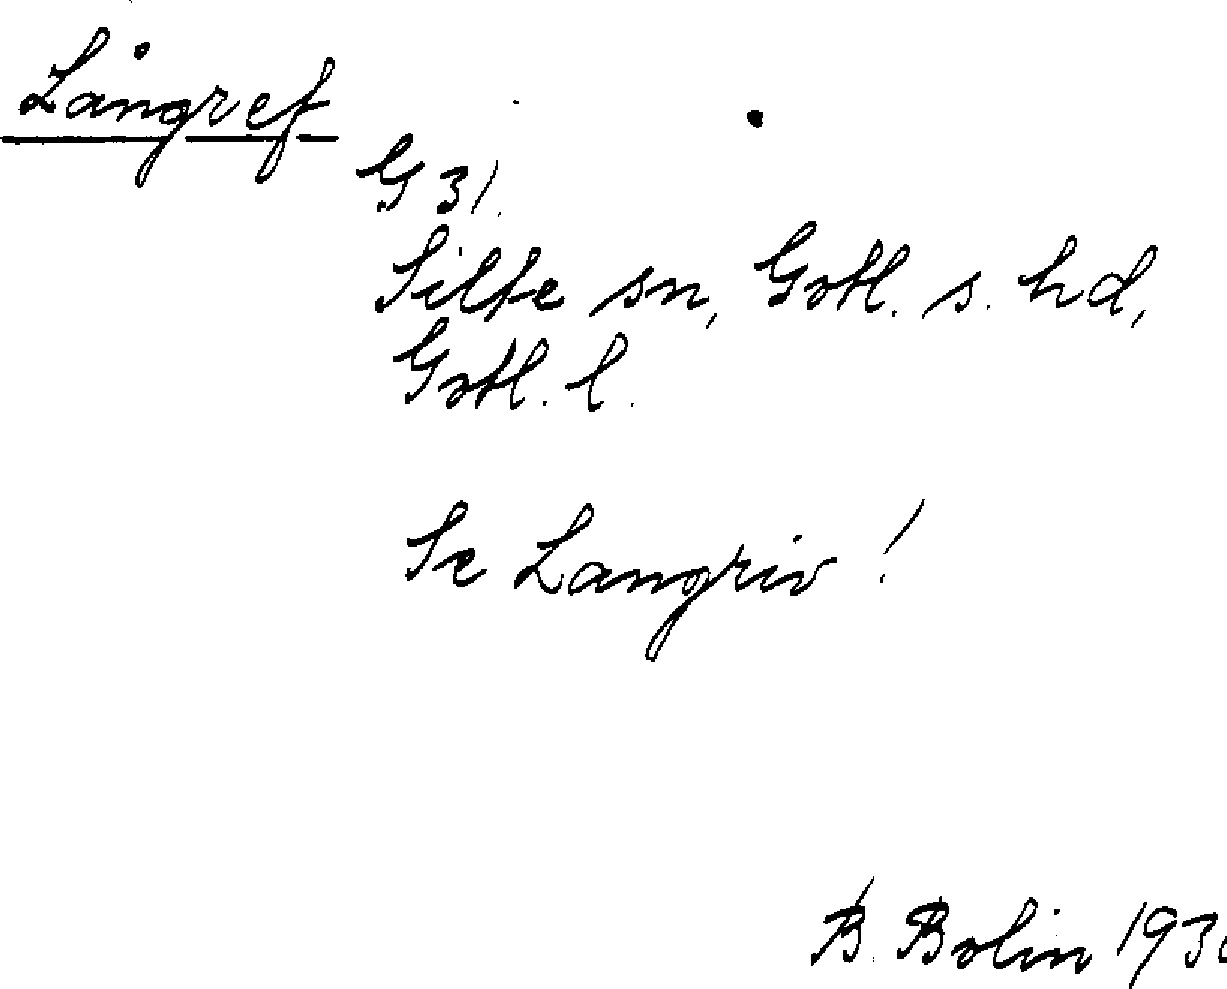 Långref
G 31.
Silte sn, Gotl. s. hd,
Gotl. l.
Se Langriv!
B. Bolin